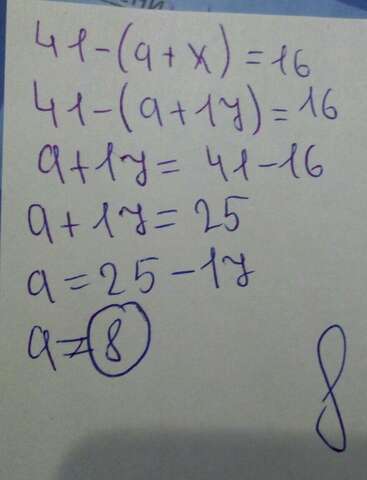 41-(a+x)=16
41-(a+17)=16
a+17=41-16
a+17=25
a=25-17
a=8
8